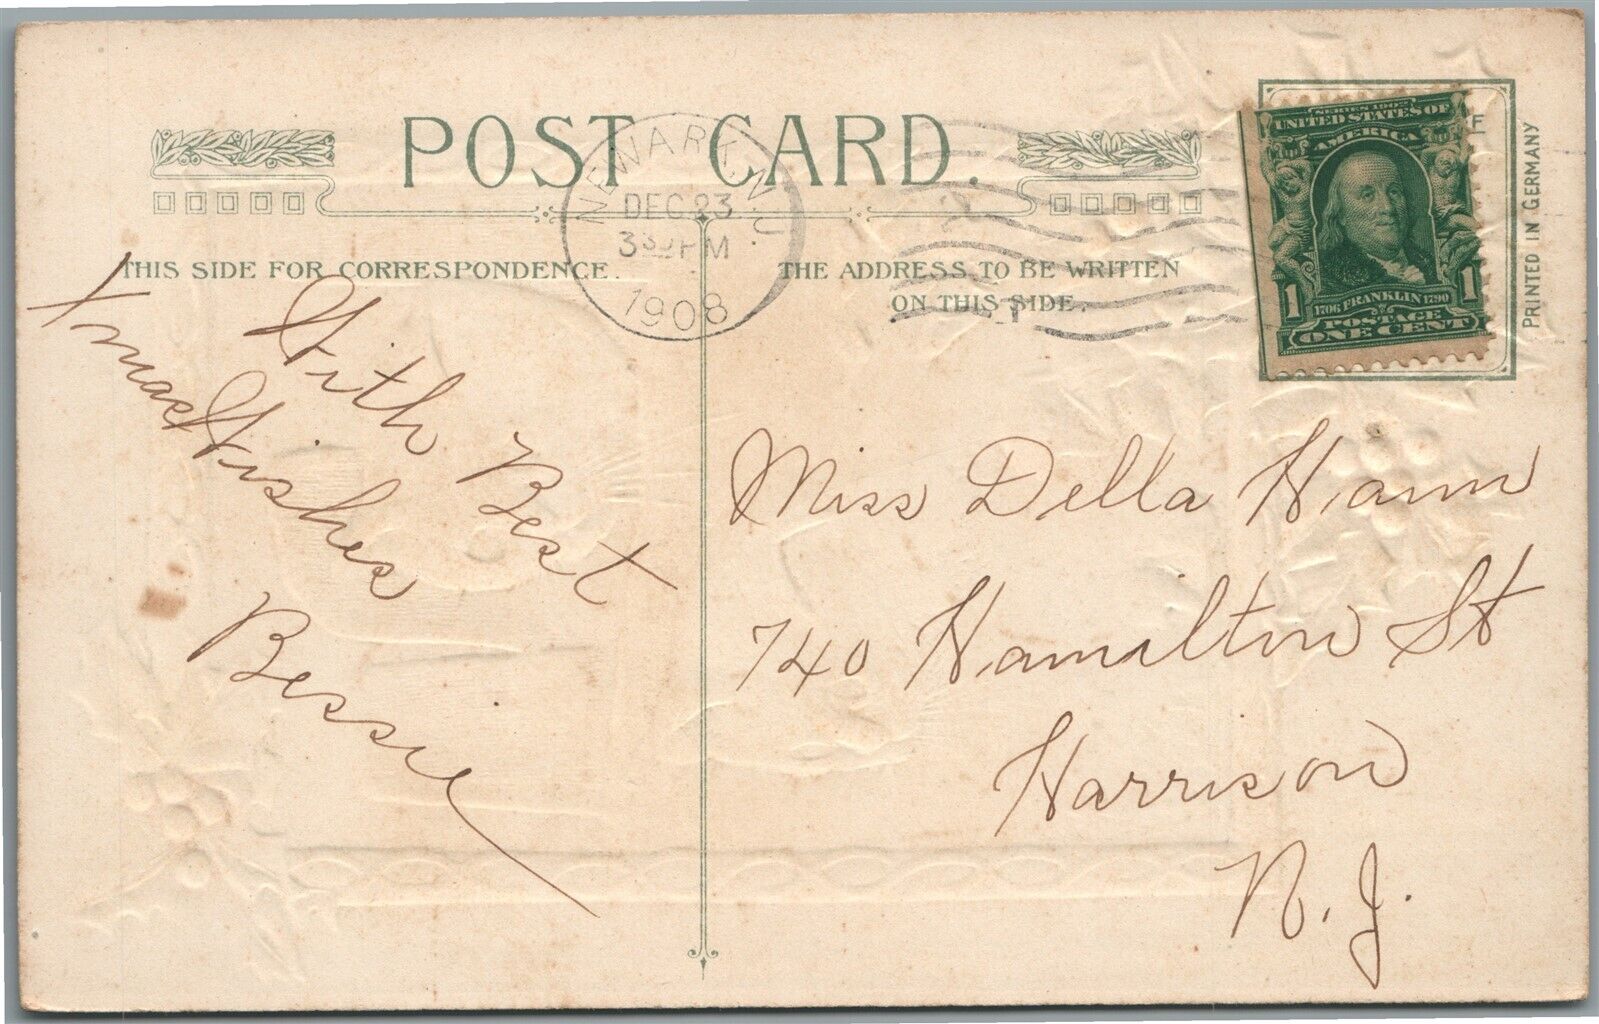 POST CARD.
NEWARK, N.J.
DEC 23
3 30 PM
1908
THIS SIDE FOR CORRESPONDENCE.
THE ADDRESS TO BE WRITTEN
ON THIS SIDE.
SERIES 1902
UNITED STATES OF
AMERICA
1706 FRANKLIN 1790
1 1
POSTAGE
ONE CENT
PRINTED IN GERMANY
With Best
Xmas Wishes
Bessie
Miss Della Hamm
740 Hamilton St
Harrison
N. J.